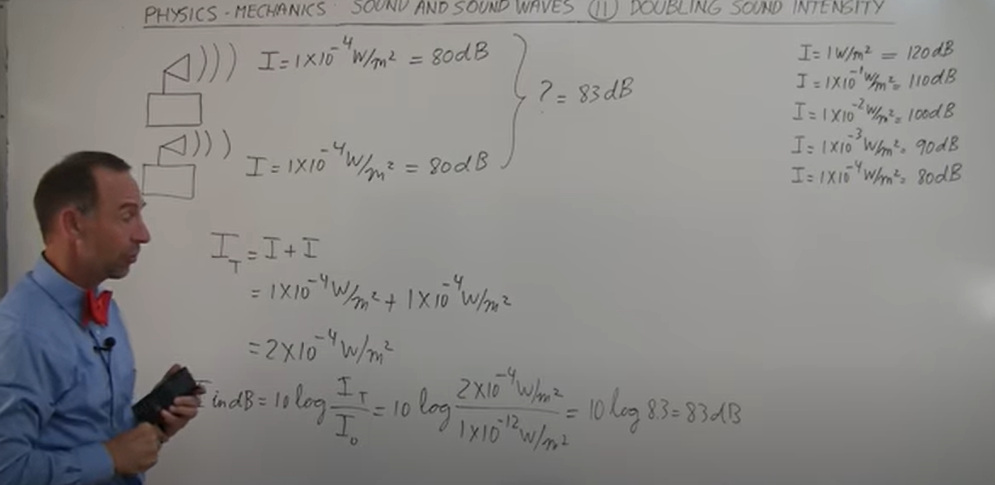 PHYSICS - MECHANICS SOUND AND SOUND WAVES (11) DOUBLING SOUND INTENSITY
I = 1X10⁻⁴ W/m² = 80dB
I = 1X10⁻⁴ W/m² = 80dB
? = 83dB
I = 1 W/m² = 120dB
I = 1X10⁻¹ W/m² = 110dB
I = 1X10⁻² W/m² = 100dB
I = 1X10⁻³ W/m² = 90dB
I = 1X10⁻⁴ W/m² = 80dB
I_T = I + I
= 1X10⁻⁴ W/m² + 1X10⁻⁴ W/m²
= 2X10⁻⁴ W/m²
I in dB = 10 log I_T/I₀ = 10 log 2X10⁻⁴ W/m² / 1X10⁻¹² W/m² = 10 log 8.3 = 83dB